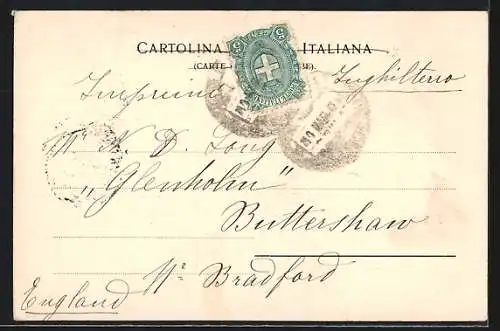 CARTOLINA ITALIANA
(CARTE
Inghilterra
Mr. N. D. Long
"Glenholm"
Buttershaw
Nr. Bradford
England